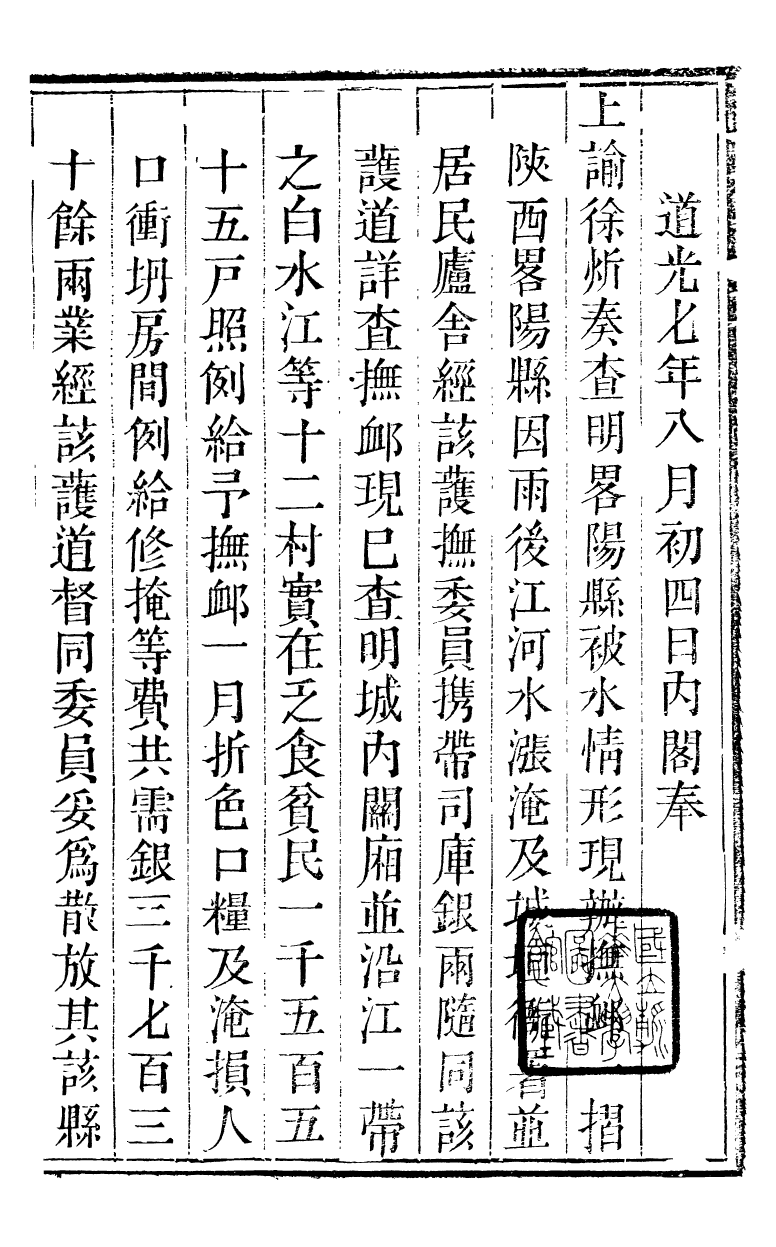 道光七年八月初四日內閣奉
上諭徐炘奏查明畧陽縣被水情形現辦撫䘏 摺
陝西畧陽縣因雨後江河水漲淹及城垣衙署並
居民廬舍經該護撫委員攜帶司庫銀兩隨同該
護道詳查撫䘏現已查明城內關廂並沿江一帶
之白水江等十二村實在乏食貧民一千五百五
十五戸照例給予撫䘏一月折色口糧及淹損人
口衝坍房間例給修掩等費共需銀三千七百三
十餘兩業經該護道督同委員妥爲散放其該縣